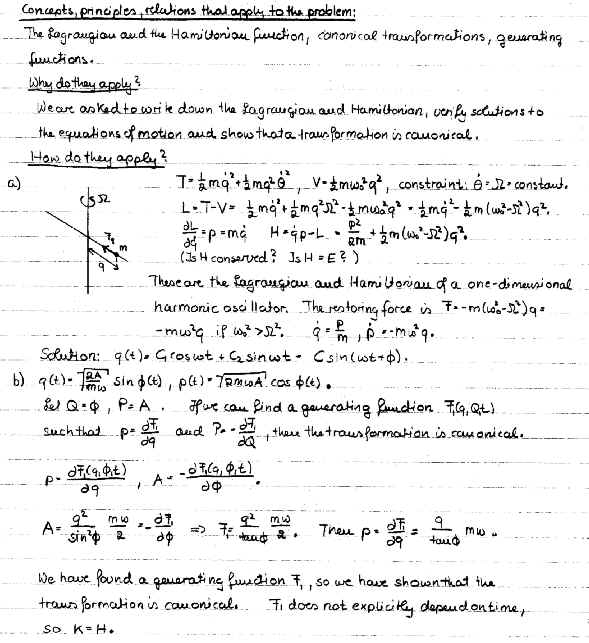 Concepts, principles, relations that apply to the problem:
The Lagrangian and the Hamiltonian function, canonical transformations, generating
functions.
Why do they apply?
We are asked to write down the Lagrangian and Hamiltonian, verify solutions to
the equations of motion and show that a transformation is canonical.
How do they apply?
a) T = ½mq̇² + ½mq²θ̇², V = ½mω₀²q², constraint: θ̇ = Ω = constant.
Ω
L = T-V = ½mq̇² + ½mq²Ω² - ½mω₀²q² = ½mq̇² - ½m(ω₀²-Ω²)q².
∂L/∂q̇ = p = mq̇ H = q̇p - L = p²/2m + ½m(ω₀²-Ω²)q².
F m
q
(Is H conserved? Is H = E?)
These are the Lagrangian and Hamiltonian of a one-dimensional
harmonic oscillator. The restoring force is F = -m(ω₀²-Ω²)q =
-mω²q if ω₀² > Ω². q̇ = p/m, ṗ = -mω²q.
Solution: q(t) = C₁cosωt + C₂sinωt = C sin(ωt+φ).
b) q(t) = √(2A/mω) sin φ(t), p(t) = √(2mωA) cos φ(t).
Let Q = φ, P = A. If we can find a generating function F₁(q,Q,t)
such that p = ∂F₁/∂q and P = -∂F₁/∂Q, then the transformation is canonical.
p = ∂F₁(q,φ,t)/∂q, A = -∂F₁(q,φ,t)/∂φ.
A = q²/sin²φ mω/2 = -∂F₁/∂φ ⇒ F₁ = q²/tanφ mω/2. Then p = ∂F₁/∂q = q/tanφ mω.
We have found a generating function F₁, so we have shown that the
transformation is canonical. F₁ does not explicitly depend on time,
so K = H.